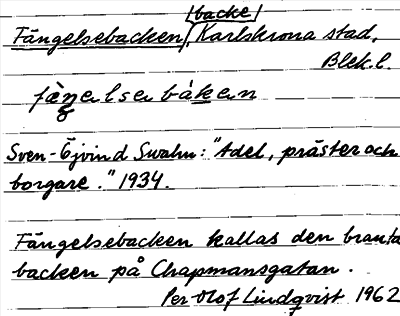 |backe|
Fängelsebacken, Karlskrona stad,
Blek.l.
fäŋelsebakən
Sven-Öjvind Swahn: "Adel, präster och
borgare." 1934.
Fängelsebacken kallas den branta
backen på Chapmansgatan.
Per-Olof Lindqvist 1962